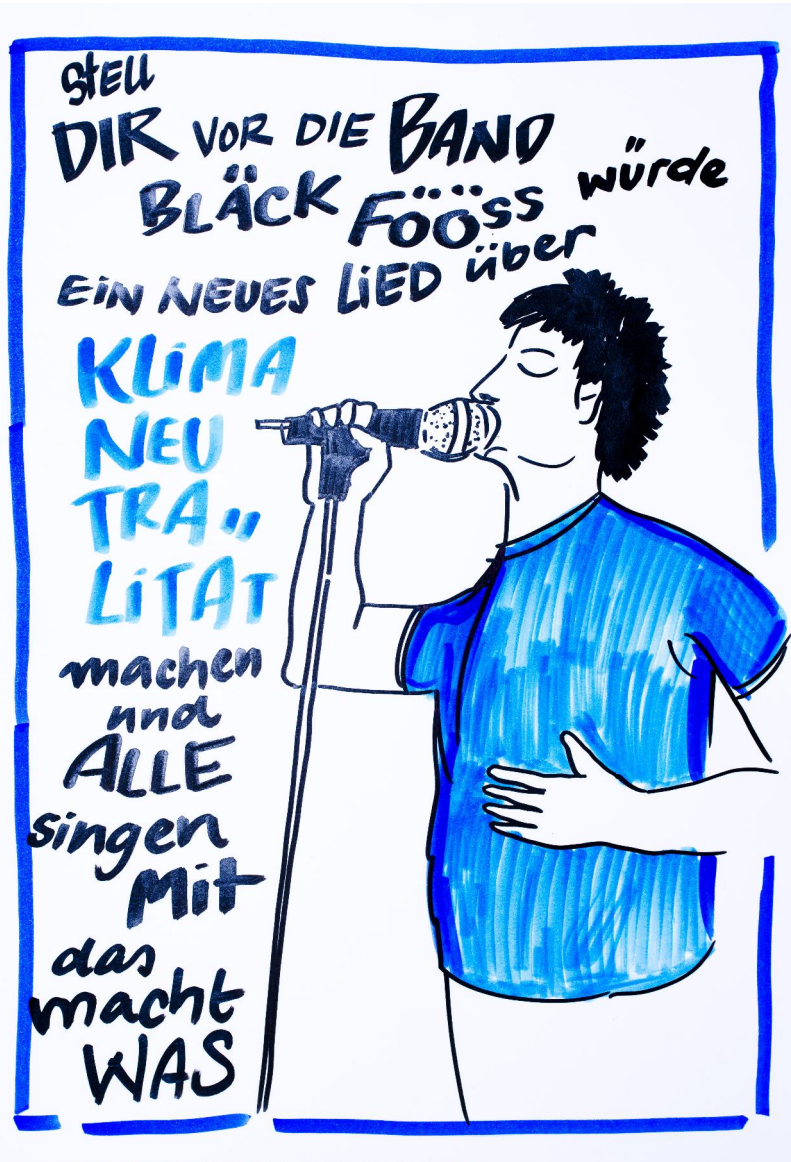 Stell
DIR VOR DIE BAND
BLÄCK FÖÖSS würde
EIN NEUES LIED über
KLIMA
NEU
TRA
LITÄT
machen
und
ALLE
singen
Mit
das
macht
WAS